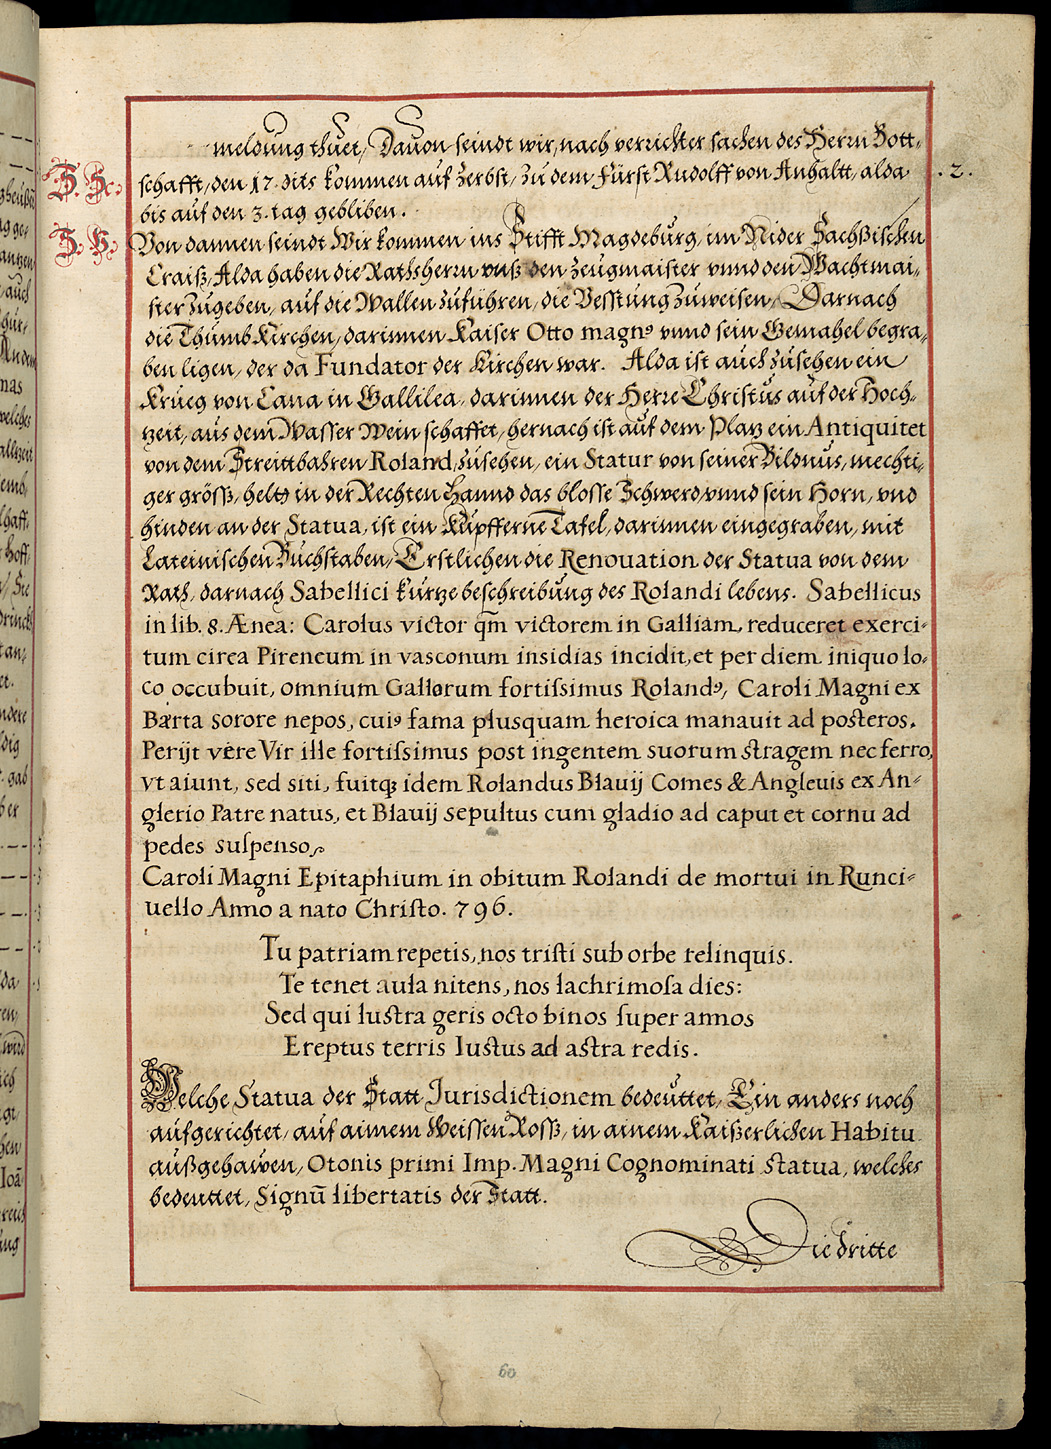 meldung thuet, Dauon seindt wir, nach verrichter sachen des Herrn Bott-
schafft, den 17. dits kommen auf Zerbst, zu dem Fürst Rudolff von Anhaltt, alda
.2.
bis auf den 3. tag gebliben.
Von dannen seindt Wir kommen ins Stifft Magdeburg, im Nider Sachßischen
Craiß, Alda haben die Rathsherrn vnß den Zeugmaister vnnd den Wachtmai-
ster Zugeben, auf die Wallen zuführen, die Vesstung Zuweisen, Darnach
die Thumb Kirchen, darinnen Kaiser Otto magnꝰ vnnd sein Gemahel begra-
ben ligen, der da Fundator der Kirchen war. Alda ist auch zusehen ein
Krueg von Cana in Gallilea, darinnen der Herre Christus auf der Hoch-
tzeit, aus dem Wasser Wein schaffet, hernach ist auf dem Platz ein Antiquitet
von dem Streittbahren Roland, zusehen, ein Statur von seiner Bildnus, mechti-
ger grösß, helt in der Rechten Hannd das blosse Schwerd, vnnd sein Horn, vnd
hinden an der Statua, ist ein Kupfferne Tafel, darinnen eingegraben, mit
Lateinischen Buchstaben, Erstlichen die Renouation der Statua von dem
Rath, darnach Sabellici kurtze beschreibung des Rolandi lebens. Sabellicus
in lib. 8. Ænea: Carolus victor qm̄ victorem in Galliam, reduceret exerci-
tum circa Pireneum in vasconum insidias incidit, et per diem iniquo lo-
co occubuit, omnium Gallorum fortissimus Rolandꝰ, Caroli Magni ex
Barta sorore nepos, cuiꝰ fama plusquam heroica manauit ad posteros.
Perijt vêre Vir ille fortissimus post ingentem suorum stragem nec ferro,
vt aiunt, sed siti, fuitqꝫ idem Rolandus Blauij Comes & Angleuis ex An-
glerio Patre natus, et Blauij sepultus cum gladio ad caput et cornu ad
pedes suspenso.
Caroli Magni Epitaphium in obitum Rolandi de mortui in Runci-
uello Anno a nato Christo. 796.
Tu patriam repetis, nos tristi sub orbe relinquis.
Te tenet aula nitens, nos lachrimosa dies:
Sed qui lustra geris octo binos super annos
Ereptus terris Iustus ad astra redis.
Welche Statua der Statt Jurisdictionem bedeuttet, Ein anders noch
aufgerichtet, auf ainem Weissen Rosß, in ainem Kaißerlichen Habitu
außgehawen, Otonis primi Imp. Magni Cognominati statua, welches
bedeuttet, Signū libertatis der Statt.
Die dritte
60